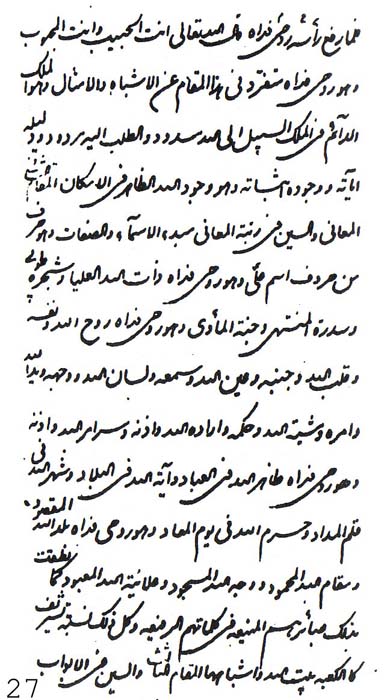 فلما رفع رأسه روحی فداه قال الله تعالی انت الحبیب وانت المحبوب
وهو روحی فداه متفرد فی هذا المقام عن الاشباه والامثال وهو الملک
الدائم فی الملک السبیل الی الله مسدود والطلب الیه مردود دلیله
آیاته ووجوده اثباته وهو وجود الله الظاهر فی الامکان المقام الثانی
المعانی والسین فی رتبة المعانی مبدء الاسماء والصفات وهو حرف
من حروف اسم علی وهو روحی فداه ذات الله العلیا وشجرة طوبی
وسدرة المنتهی وجنة المأوی وهو روحی فداه روح الله ونفسه
وقلب الله وجنبه وعین الله وسمعه ولسان الله ووجهه وید الله
وامره ومشیة الله وحکمه وارادة الله واذنه وسر الله واذنه
وهو روحی فداه ظاهر الله فی العباد وآیة الله فی البلاد وشهر الله فی
قلم المداد وحرم الله فی یوم المعاد وهو روحی فداه بلد الله المقصود
ومقام الله المحمود ووجه الله المسجود وعلانیة الله المعبود کما نطقت
بذلک ضمائرهم المنیعة فی کلماتهم الرفیعة وکل ذلک نسبة تشریف
کما الکعبة بیت الله واشباهها المقام الثالث والسین فی الابواب
27